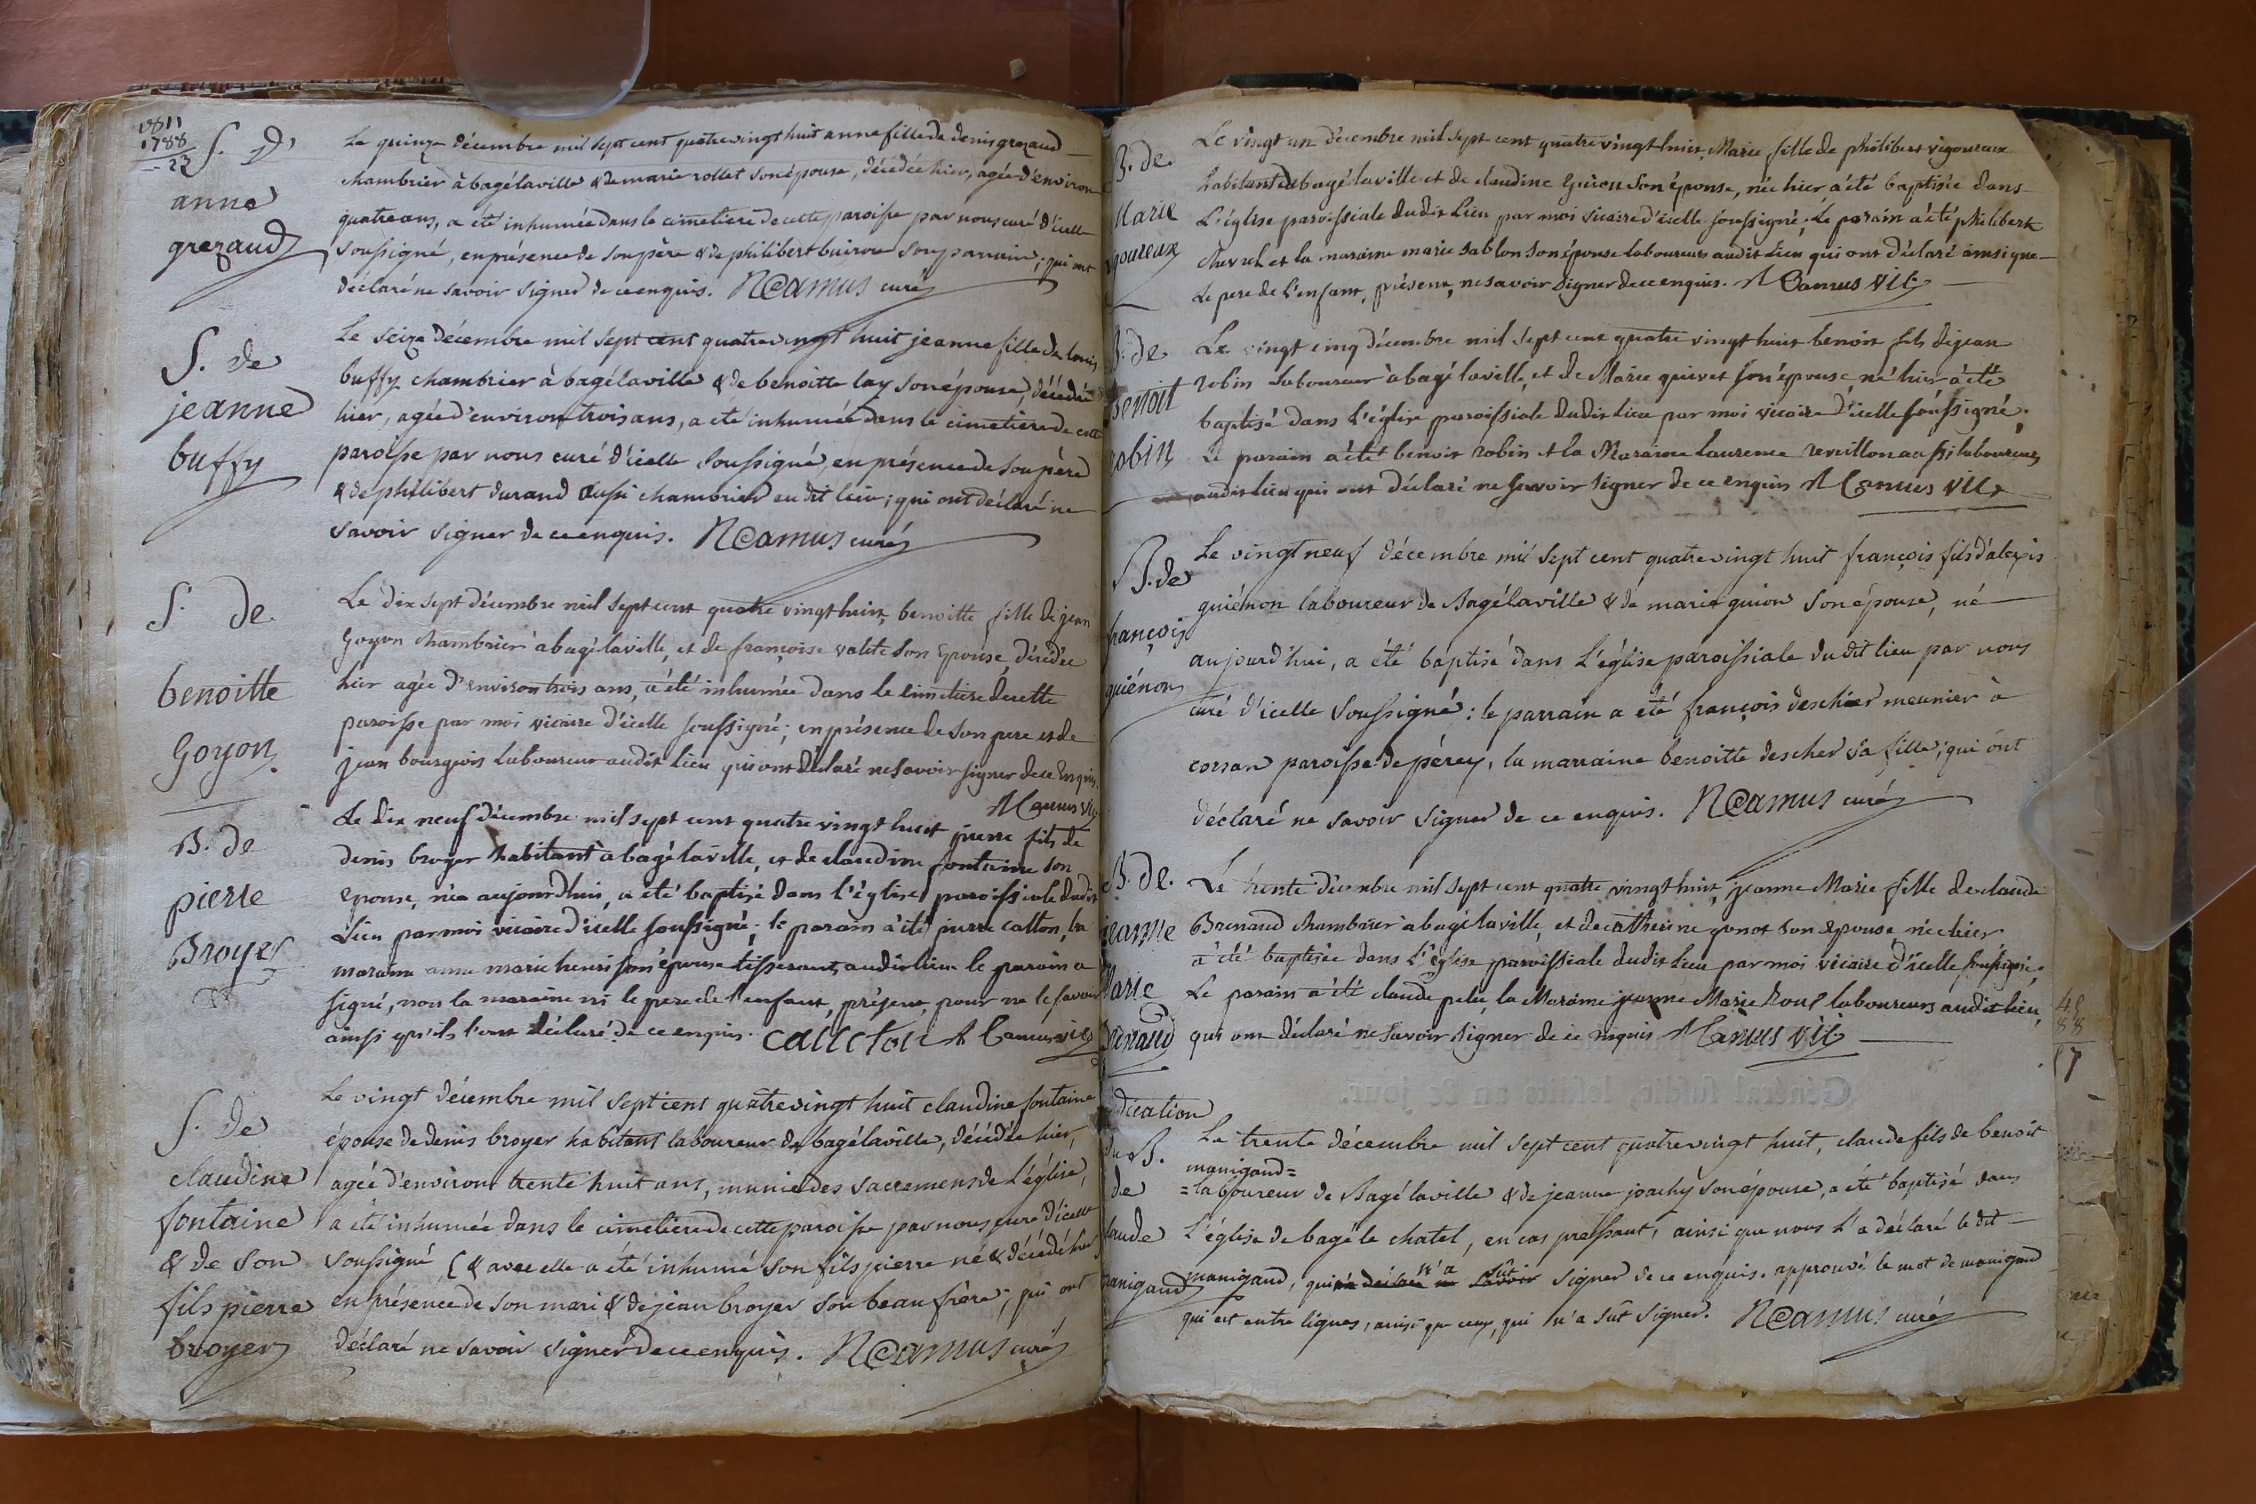 1811
1788
23
S. D
anne
grezaud
Le quinze décembre mil sept cent quatre vingt huit anne fille de denis grezaud
chambrier à bagélaville & de marie rollet son épouse, décédée hier, agée d'environ
quatre ans, a été inhumée dans le cimetiere de cette paroisse par nous curé d'icelle
soussigné, en présence de son père & de philibert buiron son parrain; qui ont
déclaré ne savoir signer de ce enquis. N Camus curé
S. de
jeanne
buffy
Le seize décembre mil sept cent quatre vingt huit jeanne fille de louis
buffy chambrier à bagélaville & de benoitte lay son épouse, décédée
hier, agée d'environ trois ans, a été inhumée dans le cimetiere de cette
paroisse par nous curé d'icelle soussigné, en présence de son père
& de philibert durand aussi chambrier au dit lieu; qui ont déclaré ne
savoir signer de ce enquis. N Camus curé
S. de
benoitte
Goyon
Le dix sept décembre mil sept cent quatre vingt huit, benoitte fille de jean
Goyon chambrier à bagélaville, et de françoise valete son epouse, décédée
hier agée d'environ trois ans, a été inhumée dans le cimetiere de cette
paroisse par moi vicaire d'icelle soussigné; en présence de son pere et de
jean bourgeois laboureur audit lieu qui ont déclaré ne savoir signer de ce enquis.
A Camus vic
B. de
pierre
Broyer
Le dix neuf décembre mil sept cent quatre vingt huit pierre fils de
denis broyer habitant à bagélaville, et de claudine fontaine son
epouse, née aujourdhui, a été baptisé dans l'église paroissiale dudit
lieu par moi vicaire d'icelle soussigné; le parain a été pierre catton, la
maraine anne marie henri son épouse tisserants audit lieu le parain a
signé, non la maraine ni le pere de l'enfant, présent, pour ne le savoir
ainsi qu'ils l'ont déclaré de ce enquis. A Camus vic
S. de
claudine
fontaine
& de son
fils pierre
broyer
Le vingt décembre mil sept cent quatre vingt huit claudine fontaine
épouse de denis broyer habitant laboureur de bagélaville, décédée hier,
agée d'environ trente huit ans, munie des sacremens de l'église,
a été inhumée dans le cimetiere de cette paroisse par nous curé d'icelle
soussigné (& avec elle a été inhumé son fils pierre né & décédé hier
en présence de son mari & de jean broyer son beau frère; qui ont
déclaré ne savoir signer de ce enquis. N Camus curé
B. de
Marie
goureux
Le vingt un décembre mil sept cent quatre vingt huit, Marie fille de philibert vigoureux
habitant à bagélaville et de claudine Guion son épouse, née hier a été baptisée dans
L'église paroissiale dudit Lieu par moi vicaire d'icelle soussigné; Le parain a été philibert
chevrel et la maraine marie sablon son épouse laboureurs audit Lieu qui ont déclaré ainsi que
Le pere de l'enfant, présent, ne savoir signer de ce enquis. A Camus vic
B. de
Benoit
robin
Le vingt cinq décembre mil sept cent quatre vingt huit benoit fils de jean
robin Laboureur à bagélaville, et de Marie quivet son épouse, né hier a été
baptisé dans L'église paroissiale dudit Lieu par moi vicaire d'icelle soussigné,
Le parain a été benoit robin et la Maraine laurence reveillon aussi laboureurs
audit Lieu qui ont déclaré ne savoir signer de ce enquis A Camus vic
B. de
françois
guiénon
Le vingt neuf décembre mil sept cent quatre vingt huit françois fils d'alexis
guiénon laboureur de Bagélaville & de marie guion son épouse, né
aujourd'hui, a été baptisé dans L'église paroissiale du dit lieu par nous
curé d'icelle soussigné: le parrain a été françois descher meunier à
corsan paroisse de pérey, la marraine benoitte descher sa fille; qui ont
déclaré ne savoir signer de ce enquis. N Camus curé
B. de.
jeanne
Marie
Le trente décembre mil sept cent quatre vingt huit, jeanne Marie fille de claude
Bernaud chambrier à bagélaville, et de catherine gonot son epouse née hier
a été baptisée dans L'église paroissiale dudit Lieu par moi vicaire d'icelle soussigné;
Le parain a été claude pelu, la Maraine jeanne Marie Roux laboureurs audit lieu,
qui ont déclaré ne savoir signer de ce enquis A Camus vic
dication
du B.
de
laude
manigaud
Le trente décembre mil sept cent quatre vingt huit, claude fils de benoit
manigaud=
=laboureur de Bagélaville & de jeanne joachy son épouse, a été baptisé dans
L'église de bagé le chatel, en cas pressant, ainsi que nous L'a déclaré le dit
manigaud, qui n'a sût signer de ce enquis. approuvé le mot de manigaud
qui est entre lignes, ainsi que ceux, qui n'a sût signer. N Camus curé